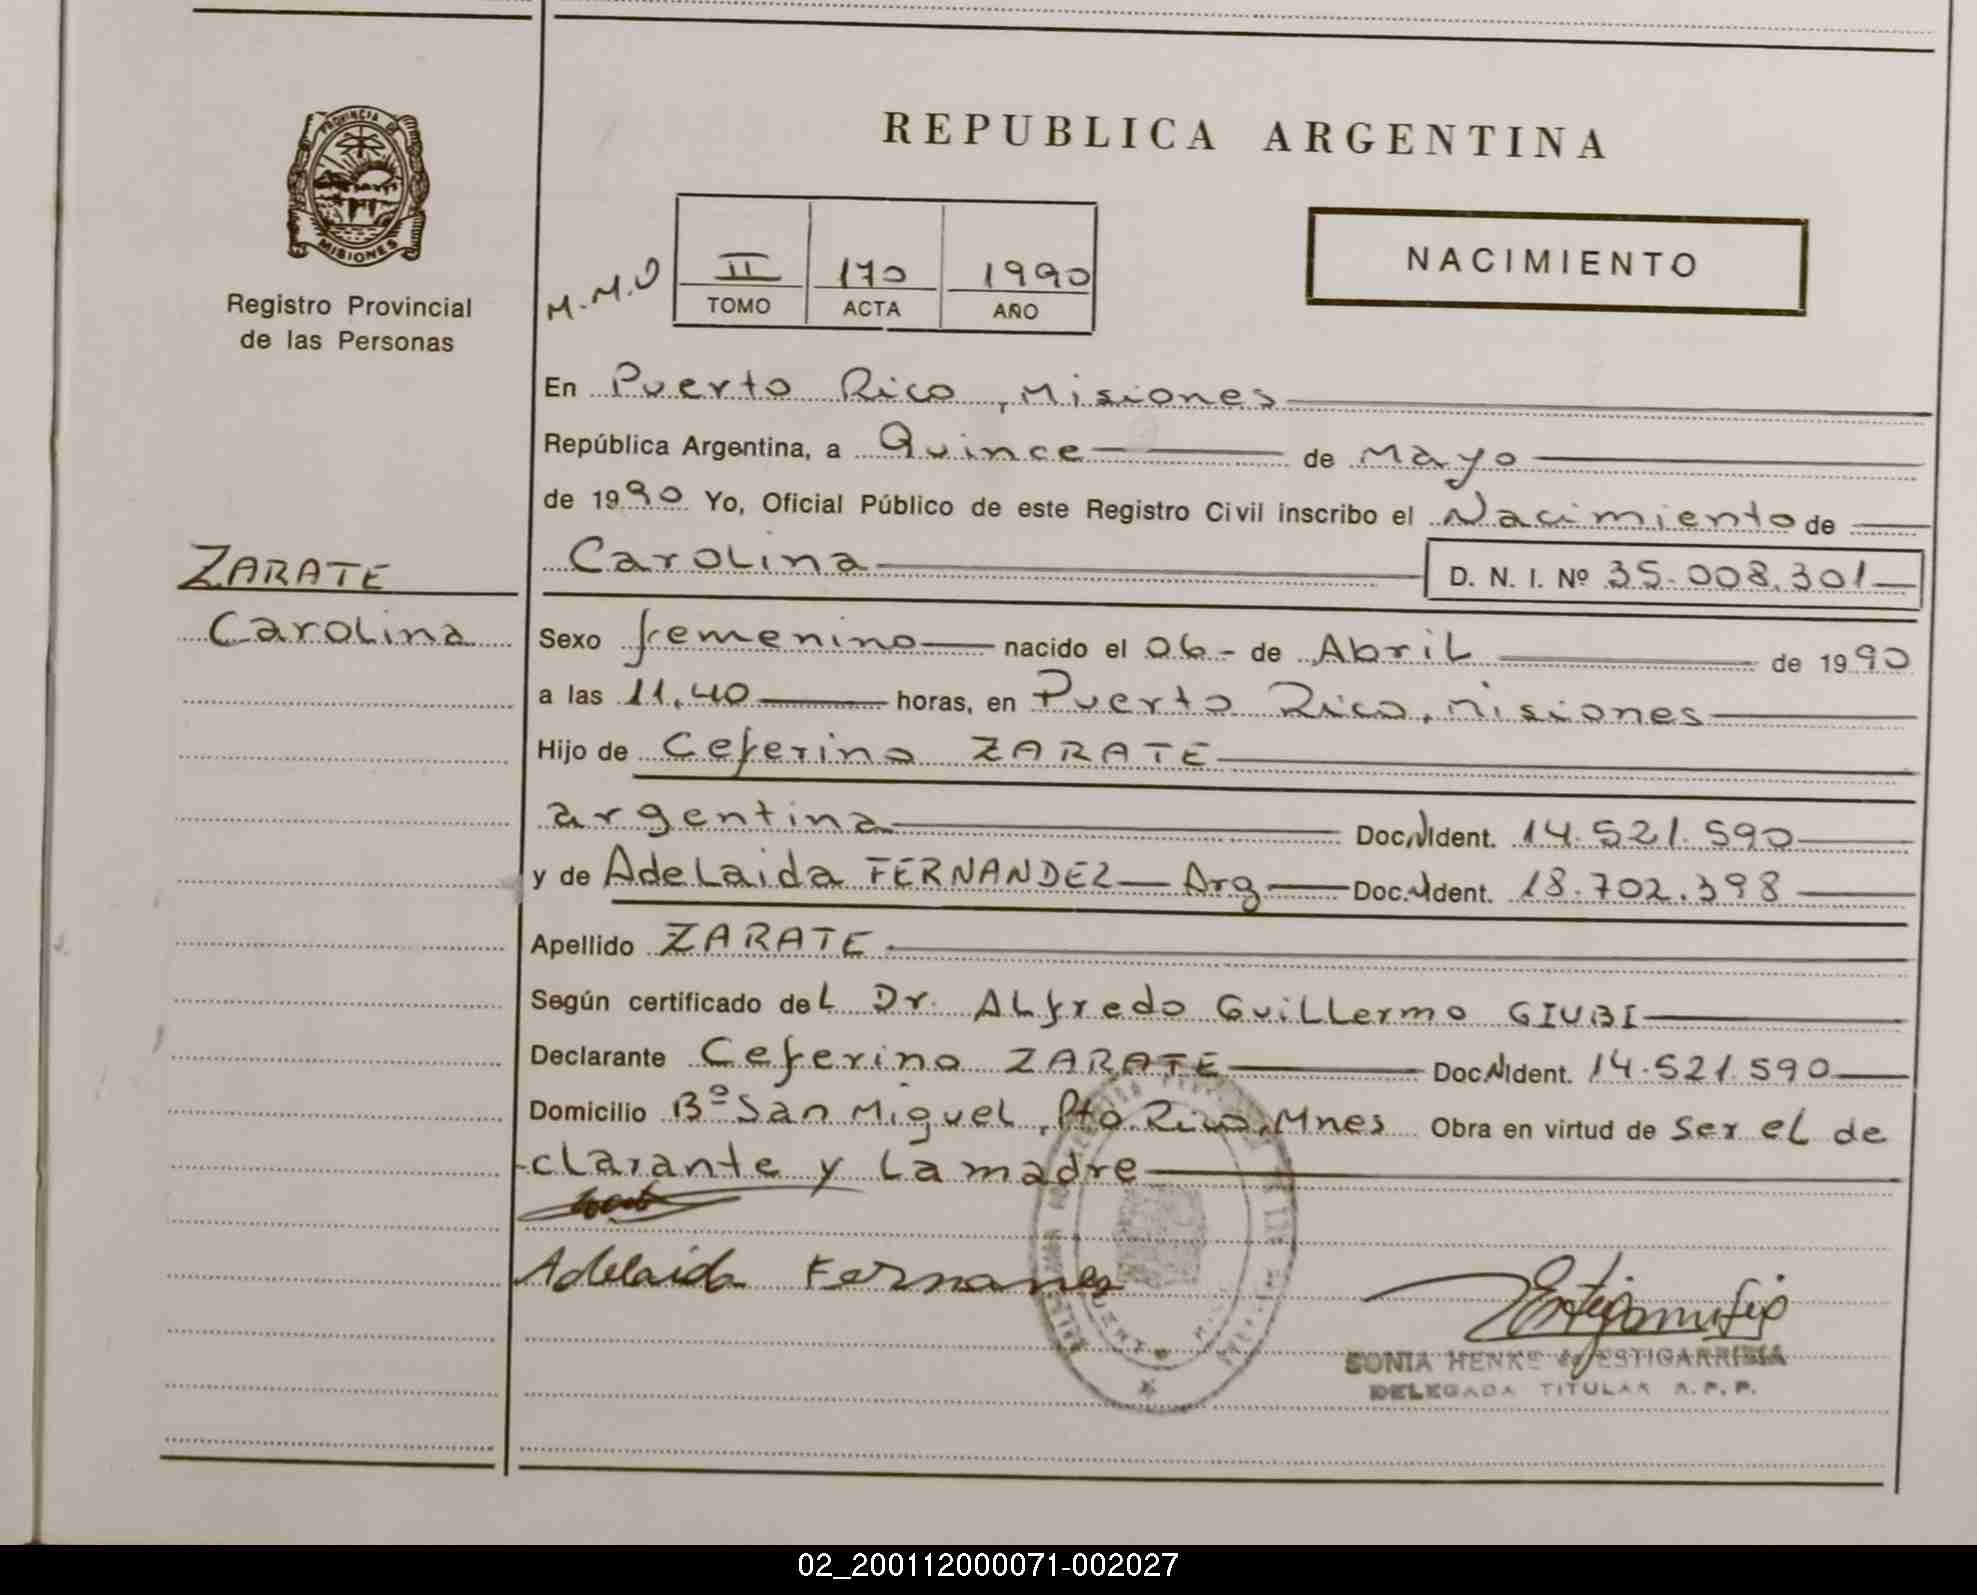 REPUBLICA ARGENTINA
PROVINCIA DE
MISIONES
Registro Provincial
de las Personas
M.M.O
II 170 1990
TOMO ACTA AÑO
NACIMIENTO
En Puerto Rico, Misiones
República Argentina, a Quince de Mayo
de 1990 Yo, Oficial Público de este Registro Civil inscribo el Nacimiento de
ZARATE
Carolina
Carolina D. N. I. Nº 35.008.301
Sexo femenino nacido el 06- de Abril de 1990
a las 11,40 horas, en Puerto Rico, Misiones
Hijo de Ceferino ZARATE
argentina Doc.N Ident. 14.521.590
y de Adelaida FERNANDEZ Arg Doc.N Ident. 18.702.398
Apellido ZARATE
Según certificado del Dr. Alfredo Guillermo GIUBI
Declarante Ceferino ZARATE Doc.N Ident. 14.521.590
Domicilio Bº San Miguel, Pto Rico, Mnes Obra en virtud de ser el de
-clarante y la madre
Adelaida Fernanes
SONIA HENKE de ESTIGARRIBIA
DELEGADA TITULAR R.P.P.
02_200112000071-002027